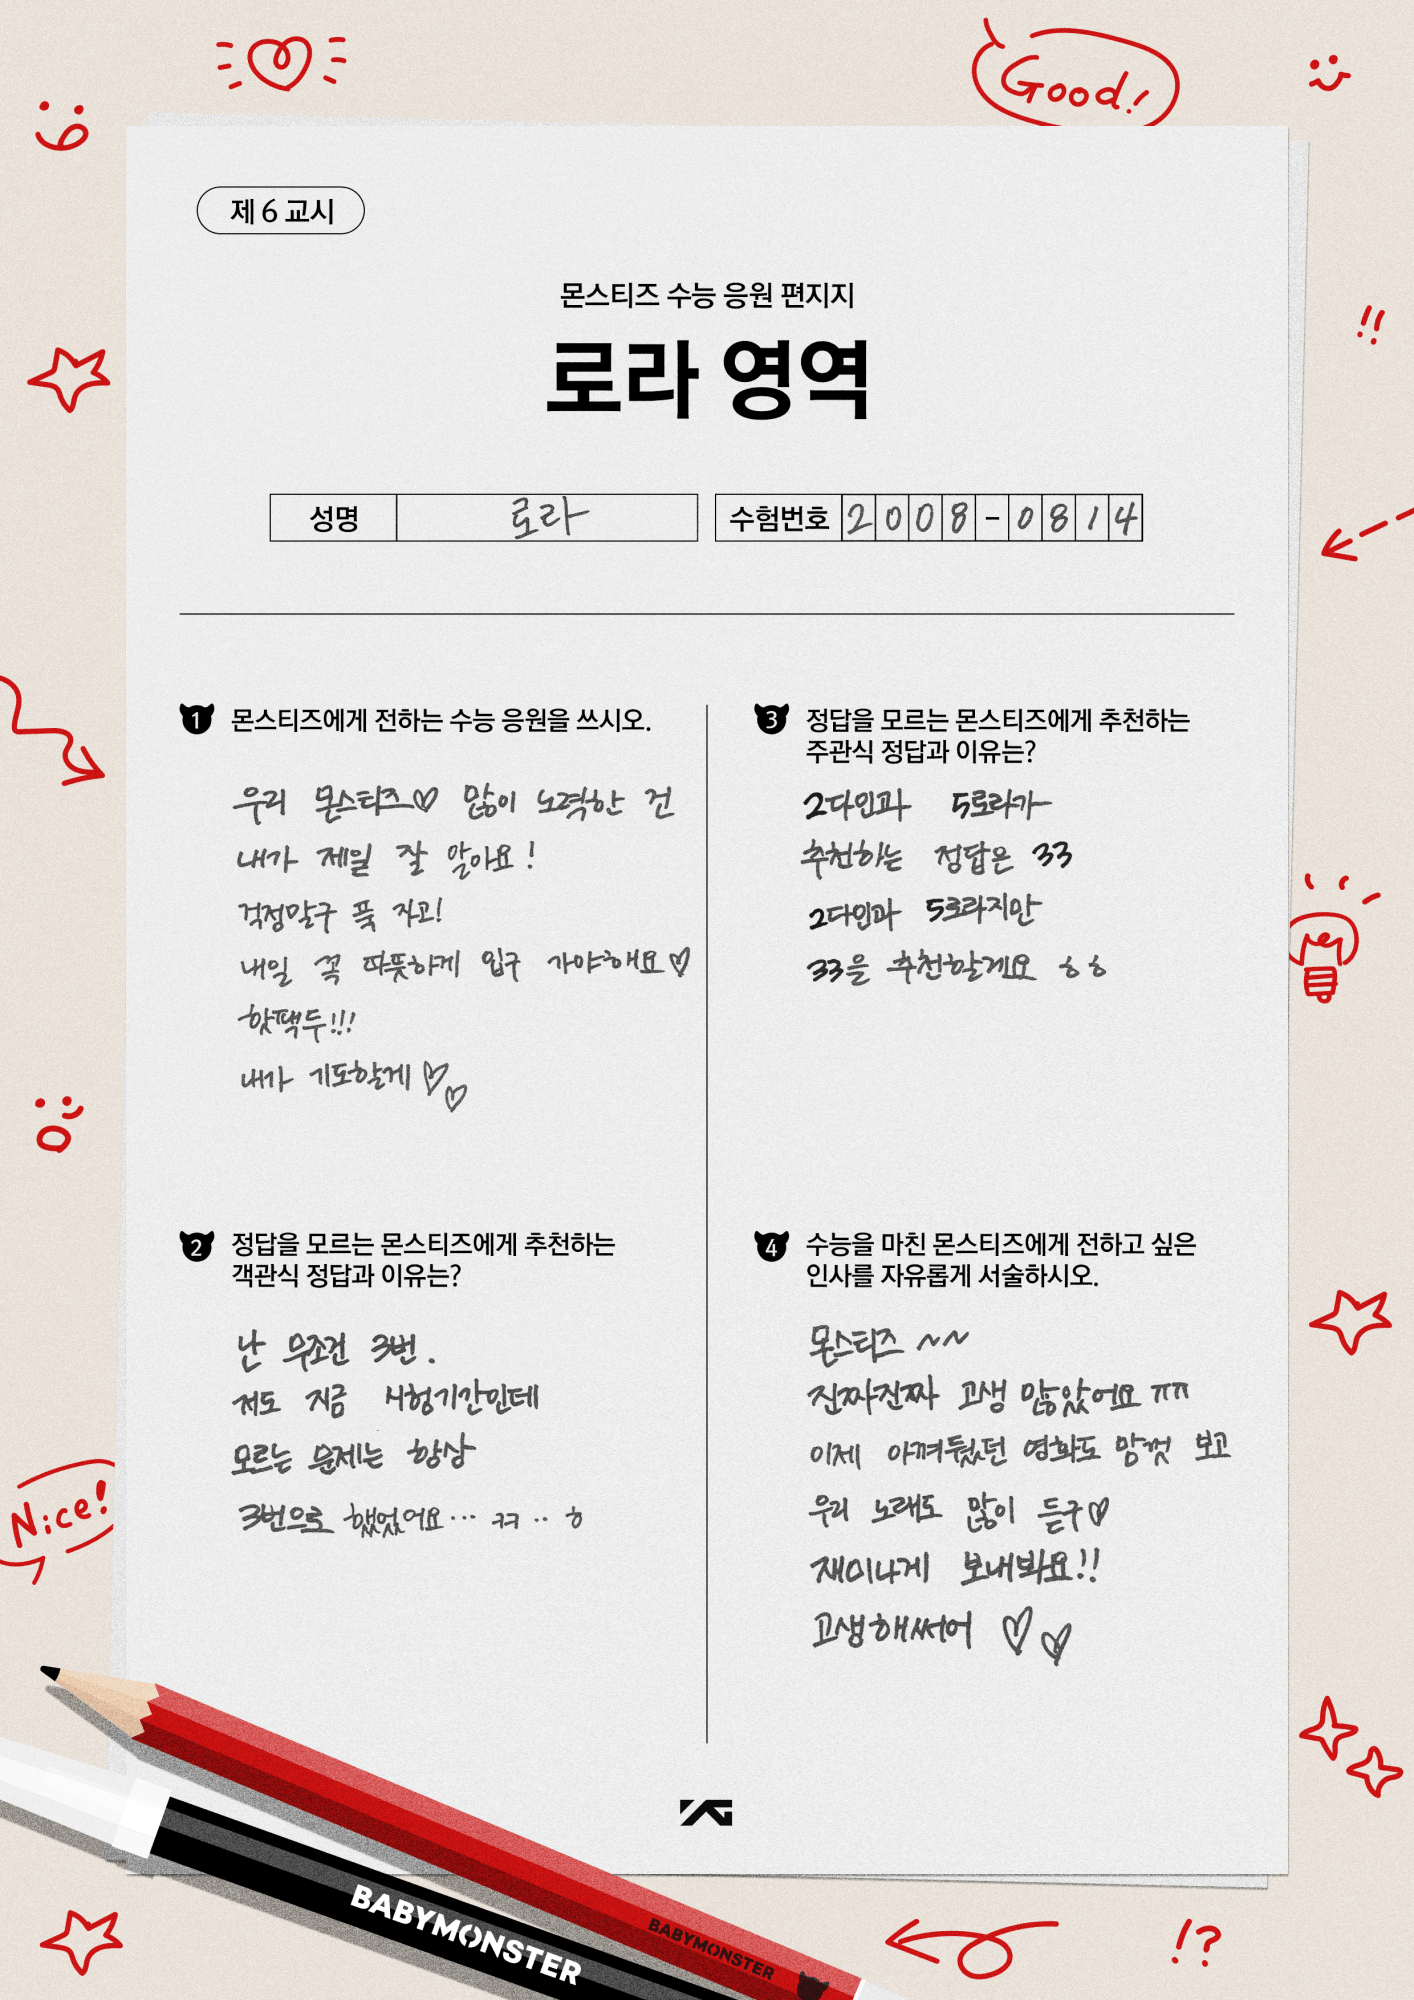 Good!
제 6 교시
몬스티즈 수능 응원 편지지
로라 영역
성명 로라 수험번호 2008-0814
1 몬스티즈에게 전하는 수능 응원을 쓰시오.
우리 몬스티즈♡ 많이 노력한 건
내가 제일 잘 알아요!
걱정말구 푹 자고!
내일 꼭 따뜻하게 입구 가야해요♡
핫팩두!!!
내가 기도할게 ♡♡
2 정답을 모르는 몬스티즈에게 추천하는
객관식 정답과 이유는?
난 무조건 3번.
저도 지금 시험기간인데
모르는 문제는 항상
3번으로 했었어요... ㅋㅋ.. ㅎ
3 정답을 모르는 몬스티즈에게 추천하는
주관식 정답과 이유는?
2다인과 5로라가
추천하는 정답은 33
2다인과 5로라지만
33을 추천할게요 ㅎㅎ
4 수능을 마친 몬스티즈에게 전하고 싶은
인사를 자유롭게 서술하시오.
몬스티즈 ~~
진짜진짜 고생 많았어요 ㅠㅠ
이제 아껴뒀던 영화도 맘껏 보고
우리 노래도 많이 듣구♡
재미나게 보내봐요!!
고생해써어 ♡♡
!!
Nice!
YG
BABYMONSTER
BABYMONSTER
!?